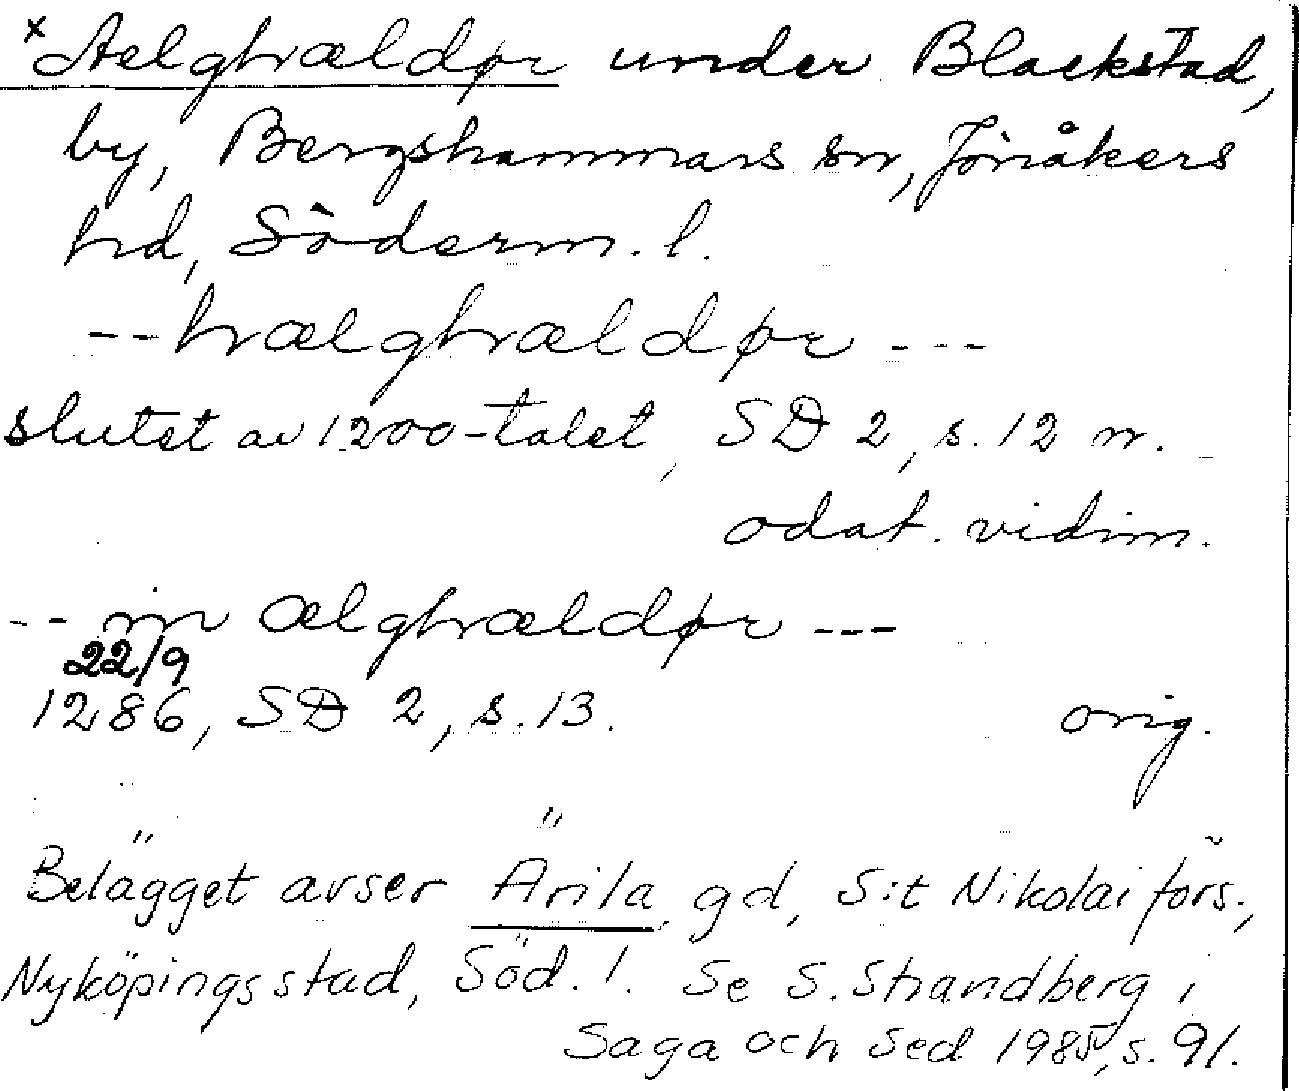 x Aelghvældør under Blackstad,
by, Bergshammars sn, Jönåkers
hd, Söderm. l.
-- hvælghvældør ---
slutet av 1200-talet, SD 2, s. 12 n.
odat. vidim.
-- in ælghvældør ---
22/9
1286, SD 2, s. 13. orig.
Belägget avser Ärila gd, S:t Nikolai förs.,
Nyköpings stad, Söd. l. Se S. Strandberg i
Saga och Sed 1985, s. 91.